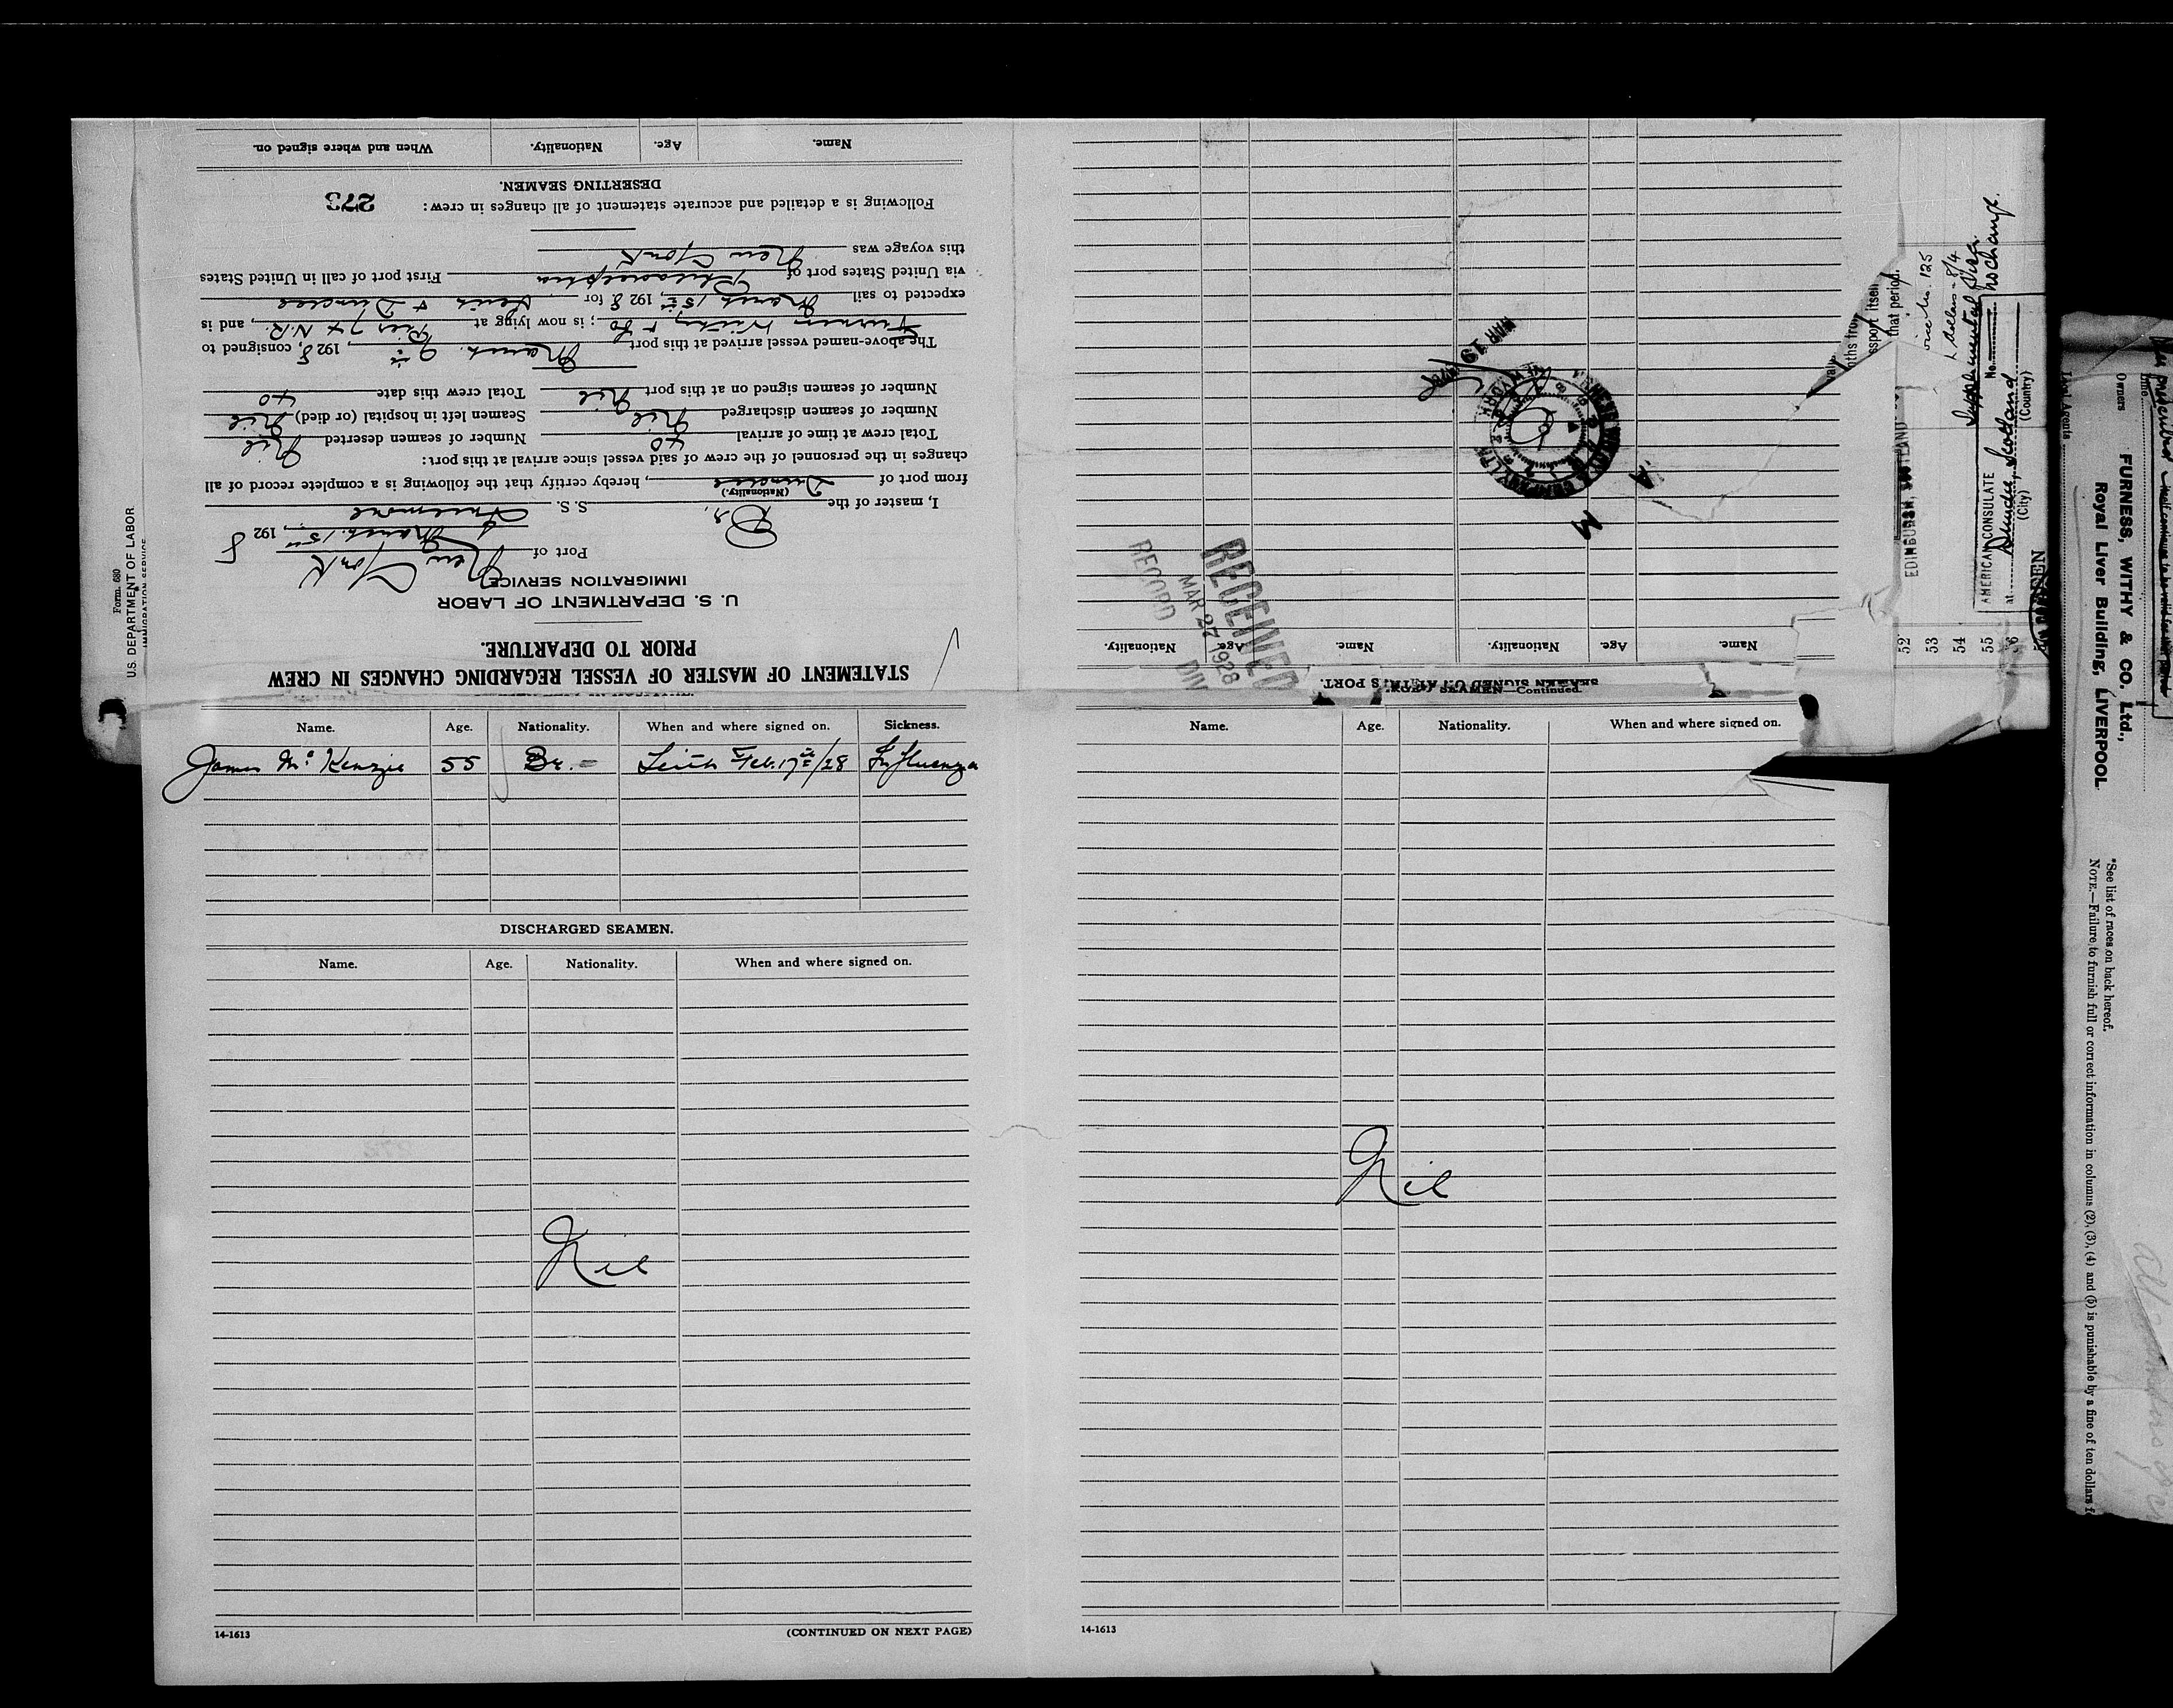 STATEMENT OF MASTER OF VESSEL REGARDING CHANGES IN CREW
PRIOR TO DEPARTURE.
U. S. DEPARTMENT OF LABOR
IMMIGRATION SERVICE
Port of New York
March 15th, 1928
I, master of the Br. S. S.
(Nationality.)
from port of Dundee, hereby certify that the following is a complete record of all
changes in the personnel of the crew of said vessel since arrival at this port:
Total crew at time of arrival 40 Number of seamen deserted Nil
Number of seamen discharged Nil Seamen left in hospital (or died) Nil
Number of seamen signed on at this port Nil Total crew this date 40
The above-named vessel arrived at this port March 9th, 1928, consigned to
Furness Withy & Co; is now lying at Pier 74 N.R., and is
expected to sail March 15th, 1928 for Leith & Dundee
via United States port of Philadelphia First port of call in United States
this voyage was New York
Following is a detailed and accurate statement of all changes in crew: 273
DESERTING SEAMEN.
Name. Age. Nationality. When and where signed on.
Form. 680
U.S. DEPARTMENT OF LABOR
IMMIGRATION SERVICE
Name. Age. Nationality. When and where signed on. Sickness.
James McKenzie 55 Br. Leith Feb. 17th/28 Influenza
DISCHARGED SEAMEN.
Name. Age. Nationality. When and where signed on.
Nil
14-1613 (CONTINUED ON NEXT PAGE)
SEAMEN—Continued.
Name. Age. Nationality. Name. Age. Nationality.
RECEIVED
MAR 27 1928
RECORD DIV
MAR 19
NEW YORK
Name. Age. Nationality. When and where signed on.
Nil
14-1613
that period.
125
Supplemental Visa
No. no charge.
AMERICAN CONSULATE
at Dundee, Scotland
(City) (Country)
EDINBURGH, SCOTLAND
52
53
54
55
Local Agents
Owners
FURNESS, WITHY & CO. Ltd.,
Royal Liver Building, LIVERPOOL.
*See list of races on back hereof.
NOTE.—Failure to furnish full or correct information in columns (2), (3), (4) and (5) is punishable by a fine of ten dollars